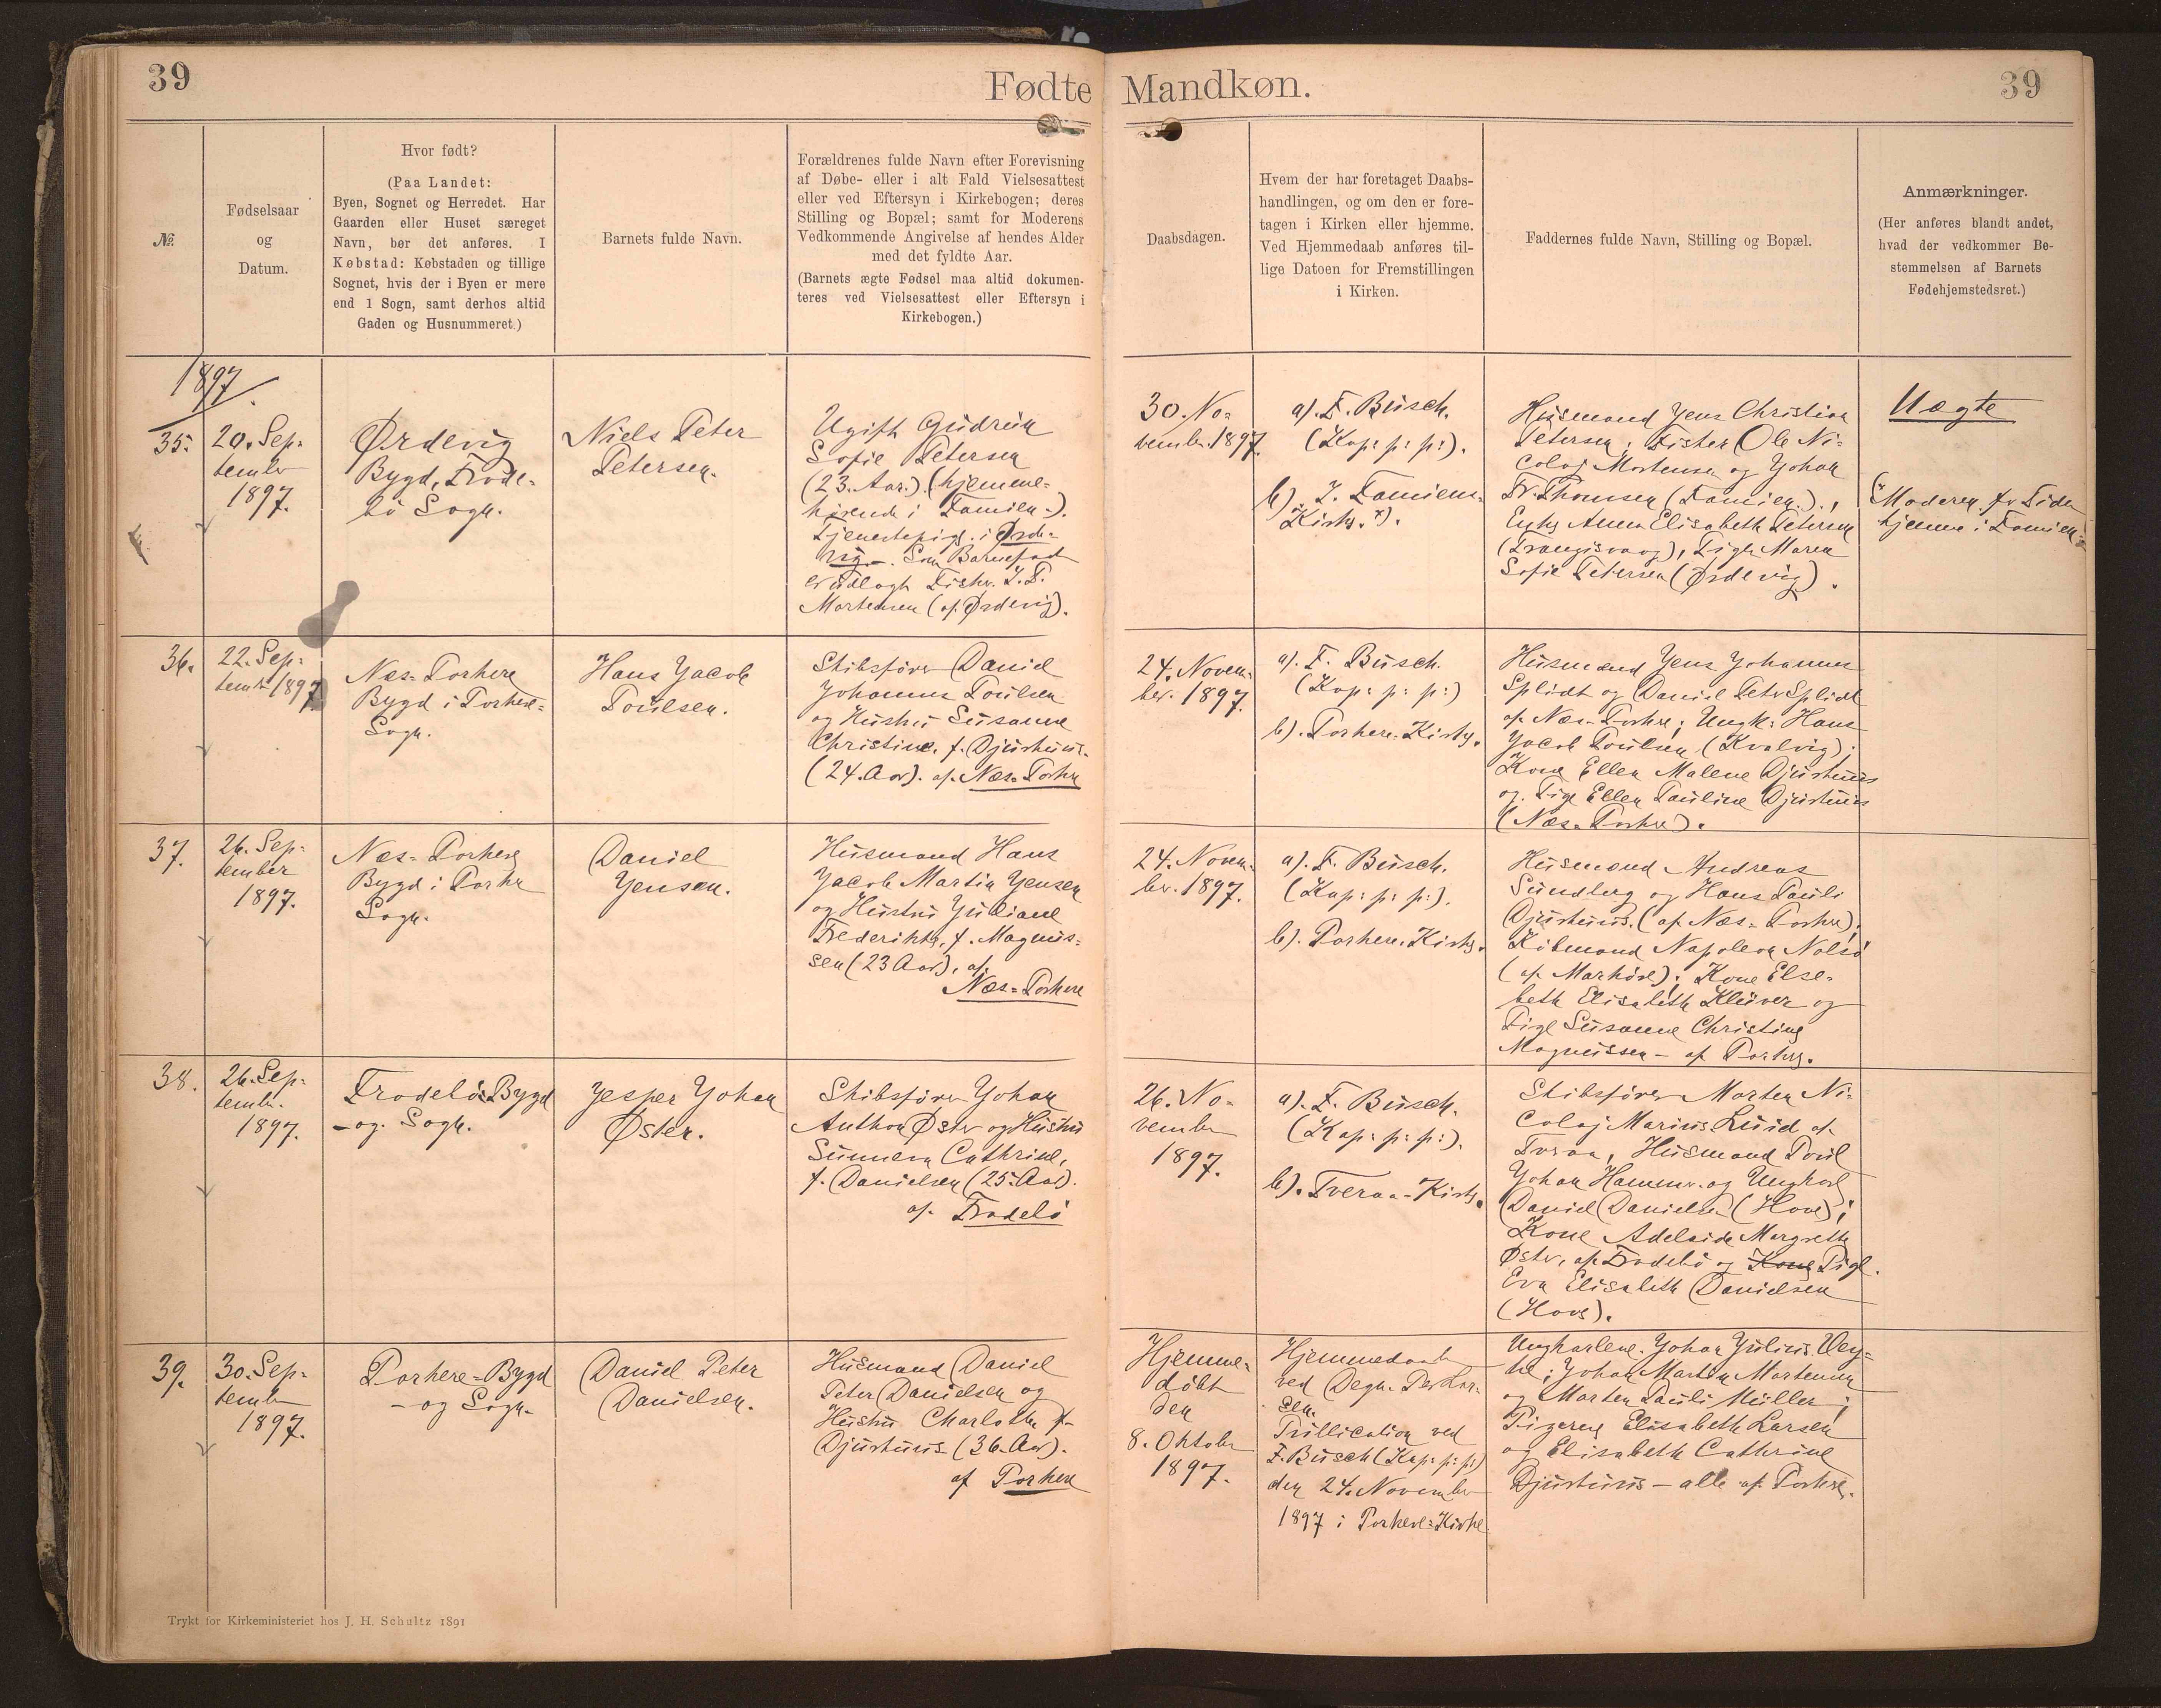 39
Fødte Mandkøn.
39
№.
Fødselsaar
og
Datum.
Hvor født?
(Paa Landet:
Byen, Sognet og Herredet. Har
Gaarden eller Huset særeget
Navn, bør det anføres. I
Købstad: Købstaden og tillige
Sognet, hvis der i Byen er mere
end 1 Sogn, samt derhos altid
Gaden og Husnummeret.)
Barnets fulde Navn.
Forældrenes fulde Navn efter Forevisning
af Døbe- eller i alt Fald Vielsesattest
eller ved Eftersyn i Kirkebogen; deres
Stilling og Bopæl; samt for Moderens
Vedkommende Angivelse af hendes Alder
med det fyldte Aar.
(Barnets ægte Fødsel maa altid dokumen-
teres ved Vielsesattest eller Eftersyn i
Kirkebogen.)
Daabsdagen.
Hvem der har foretaget Daabs-
handlingen, og om den er fore-
tagen i Kirken eller hjemme.
Ved Hjemmedaab anføres til-
lige Datoen for Fremstillingen
i Kirken.
Faddernes fulde Navn, Stilling og Bopæl.
Anmærkninger.
(Her anføres blandt andet,
hvad der vedkommer Be-
stemmelsen af Barnets
Fødehjemstedsret.)
1897.
35.
20. Sep-
tember
1897.
Ørdevig
Bygd, Frode-
bö Sogn.
Niels Peter
Petersen.
Ugift Gudrun
Sofie Petersen
(23. Aar.) (hjemme-
hørende i Famien-).
Tjenestepige i Ørde-
vig-. Som Barnefad
er udlagt Fisker J. F.
Mortensen (af Ørdevig).
30. No-
vember. 1897.
a). F. Busch.
(Kap: p: p:).
b). I. Famiens-
Kirke. x).
Husmand Jens Christian
Petersen; Fisker Ole Ni-
colaj Mortensen og Johan
Fr. Thomsen (Famien.).,
Enke Anna Elisabeth Petersen
(Trangisvaag), Pige Maren
Sofie Petersen (Ørdevig).
Uægte
x Moderen for Tiden
hjemme i Famien-
36.
22. Sep-
temb 1897
Næs-Porkere
Bygd i Porkere-
Sogn.
Hans Jacob
Poulsen.
Skibsfører Daniel
Johannes Poulsen
og Hustru Susanne
Christine, f. Djurhuus.
(24. Aar). af. Næs-Porkere
24. Novem-
ber. 1897.
a). F. Busch.
(Kap: p: p:)
b). Porkere-Kirke.
Husmænd Jens Johannes
Splidt og Daniel Peter Splidt
af Næs-Porkere; Ungk: Hans
Jacob Poulsen (Kvalvig);
Kone Ellen Malene Djurhuus
og. Pige Ellen Pauline Djurhuus
(Næs-Porkere).
37.
26. Sep-
tember
1897.
Næs-Porkere
Bygd i Porkere
Sogn.
Daniel
Jensen.
Husmand Hans
Jacob Martin Jensen
og Hustru Juliane
Frederikke, f. Magnus-
sen (23 Aar), af.
Næs-Porkere
24. Novem-
ber. 1897.
a). F. Busch.
(Kap: p: p:).
b). Porkere. Kirke.
Husmænd Andreas
Sundberg og Hans Pauli
Djurhuus. (af Næs-Porkere);
Købmand Napoleon Nolsö
(af Marköre); Kone Else-
beth Elisabeth Klüver og
Pige Susanne Christine
Magnussen - af Porkere.
38.
26. Sep-
tember.
1897.
Frodebö Bygd
-og. Sogn.
Jesper Johan
Øster.
Skibsfører Johan
Anthon Øster og Hustru
Sunneva Cathrine,
f. Danielsen (25. Aar).
af. Frodebö
26. No-
vember
1897.
a). F. Busch.
(Kap: p: p:).
b). Tveraa-Kirke.
Skibsfører Morten Ni-
colaj Marius Luid af
Tveraa, Husmand Poul
Johan Hammer. og Ungkarl
Daniel Danielsen (Hove);
Kone Adelaide Margrethe
Øster, af Frodebö og Kone Pige.
Eva Elisabeth Danielsen
(Hove).
39.
30. Sep-
tember
1897.
Porkere-Bygd
- og Sogn-
Daniel Peter
Danielsen.
Husmand Daniel
Peter Danielsen og
Hustru Charlotte f-
Djurhuus (36. Aar).
af Porkere
Hjemme-
døbt
den
8. Oktober
1897.
Hjemmedaab
ved Degn. Per Lar-
sen.
Publication ved
F. Busch (Kap: p: p:)
den 24. November
1897 i Porkere-Kirke
Ungkarlene. Johan Julius Wey-
he; Johan Martin Mortensen
og Morten Pauli Müller;
Pigerne Elisabeth Larsen
og Elisabeth Cathrine
Djurhuus - alle af Porkere.
Trykt for Kirkeministeriet hos J. H. Schultz 1891